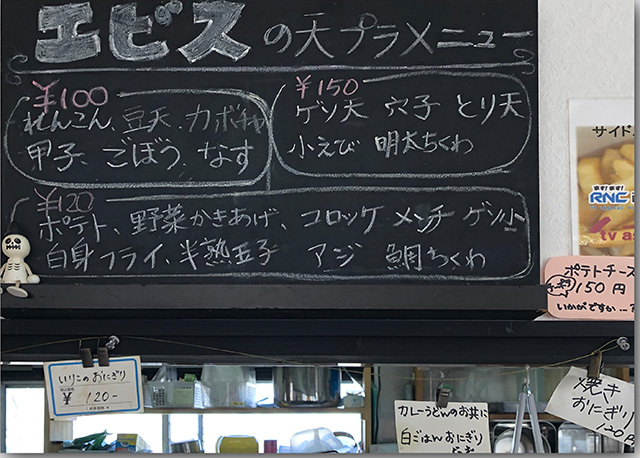 エビスの天プラメニュー
¥100
れんこん、豆天、カボチャ
甲子、ごぼう、なす
¥150
ゲソ天 穴子 とり天
小えび 明太ちくわ
¥120
ポテト、野菜かきあげ、コロッケ メンチ ゲソ小
白身フライ、半熟玉子 アジ 鯛ちくわ
サイド
RNC
tv as
ポテトチーズ
150円
いかがですか…
いりこのおにぎり
¥120-
カレーうどんのお共に
白ごはんおにぎり
焼き
おにぎり
120円